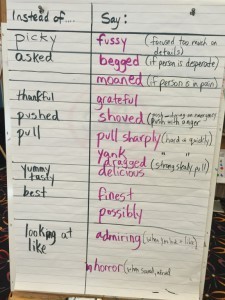 Instead of.... Say:
picky fussy (focused too much on details)
asked begged (if person is desperate)
moaned (if person is in pain)
thankful grateful
pushed shoved (push with anger
pull pull sharply (hard + quickly)
yank " "
dragged (strong steady pull)
yummy delicious
tasty
best finest
possibly
looking at admiring (when you look + like)
like
in horror (when scared,